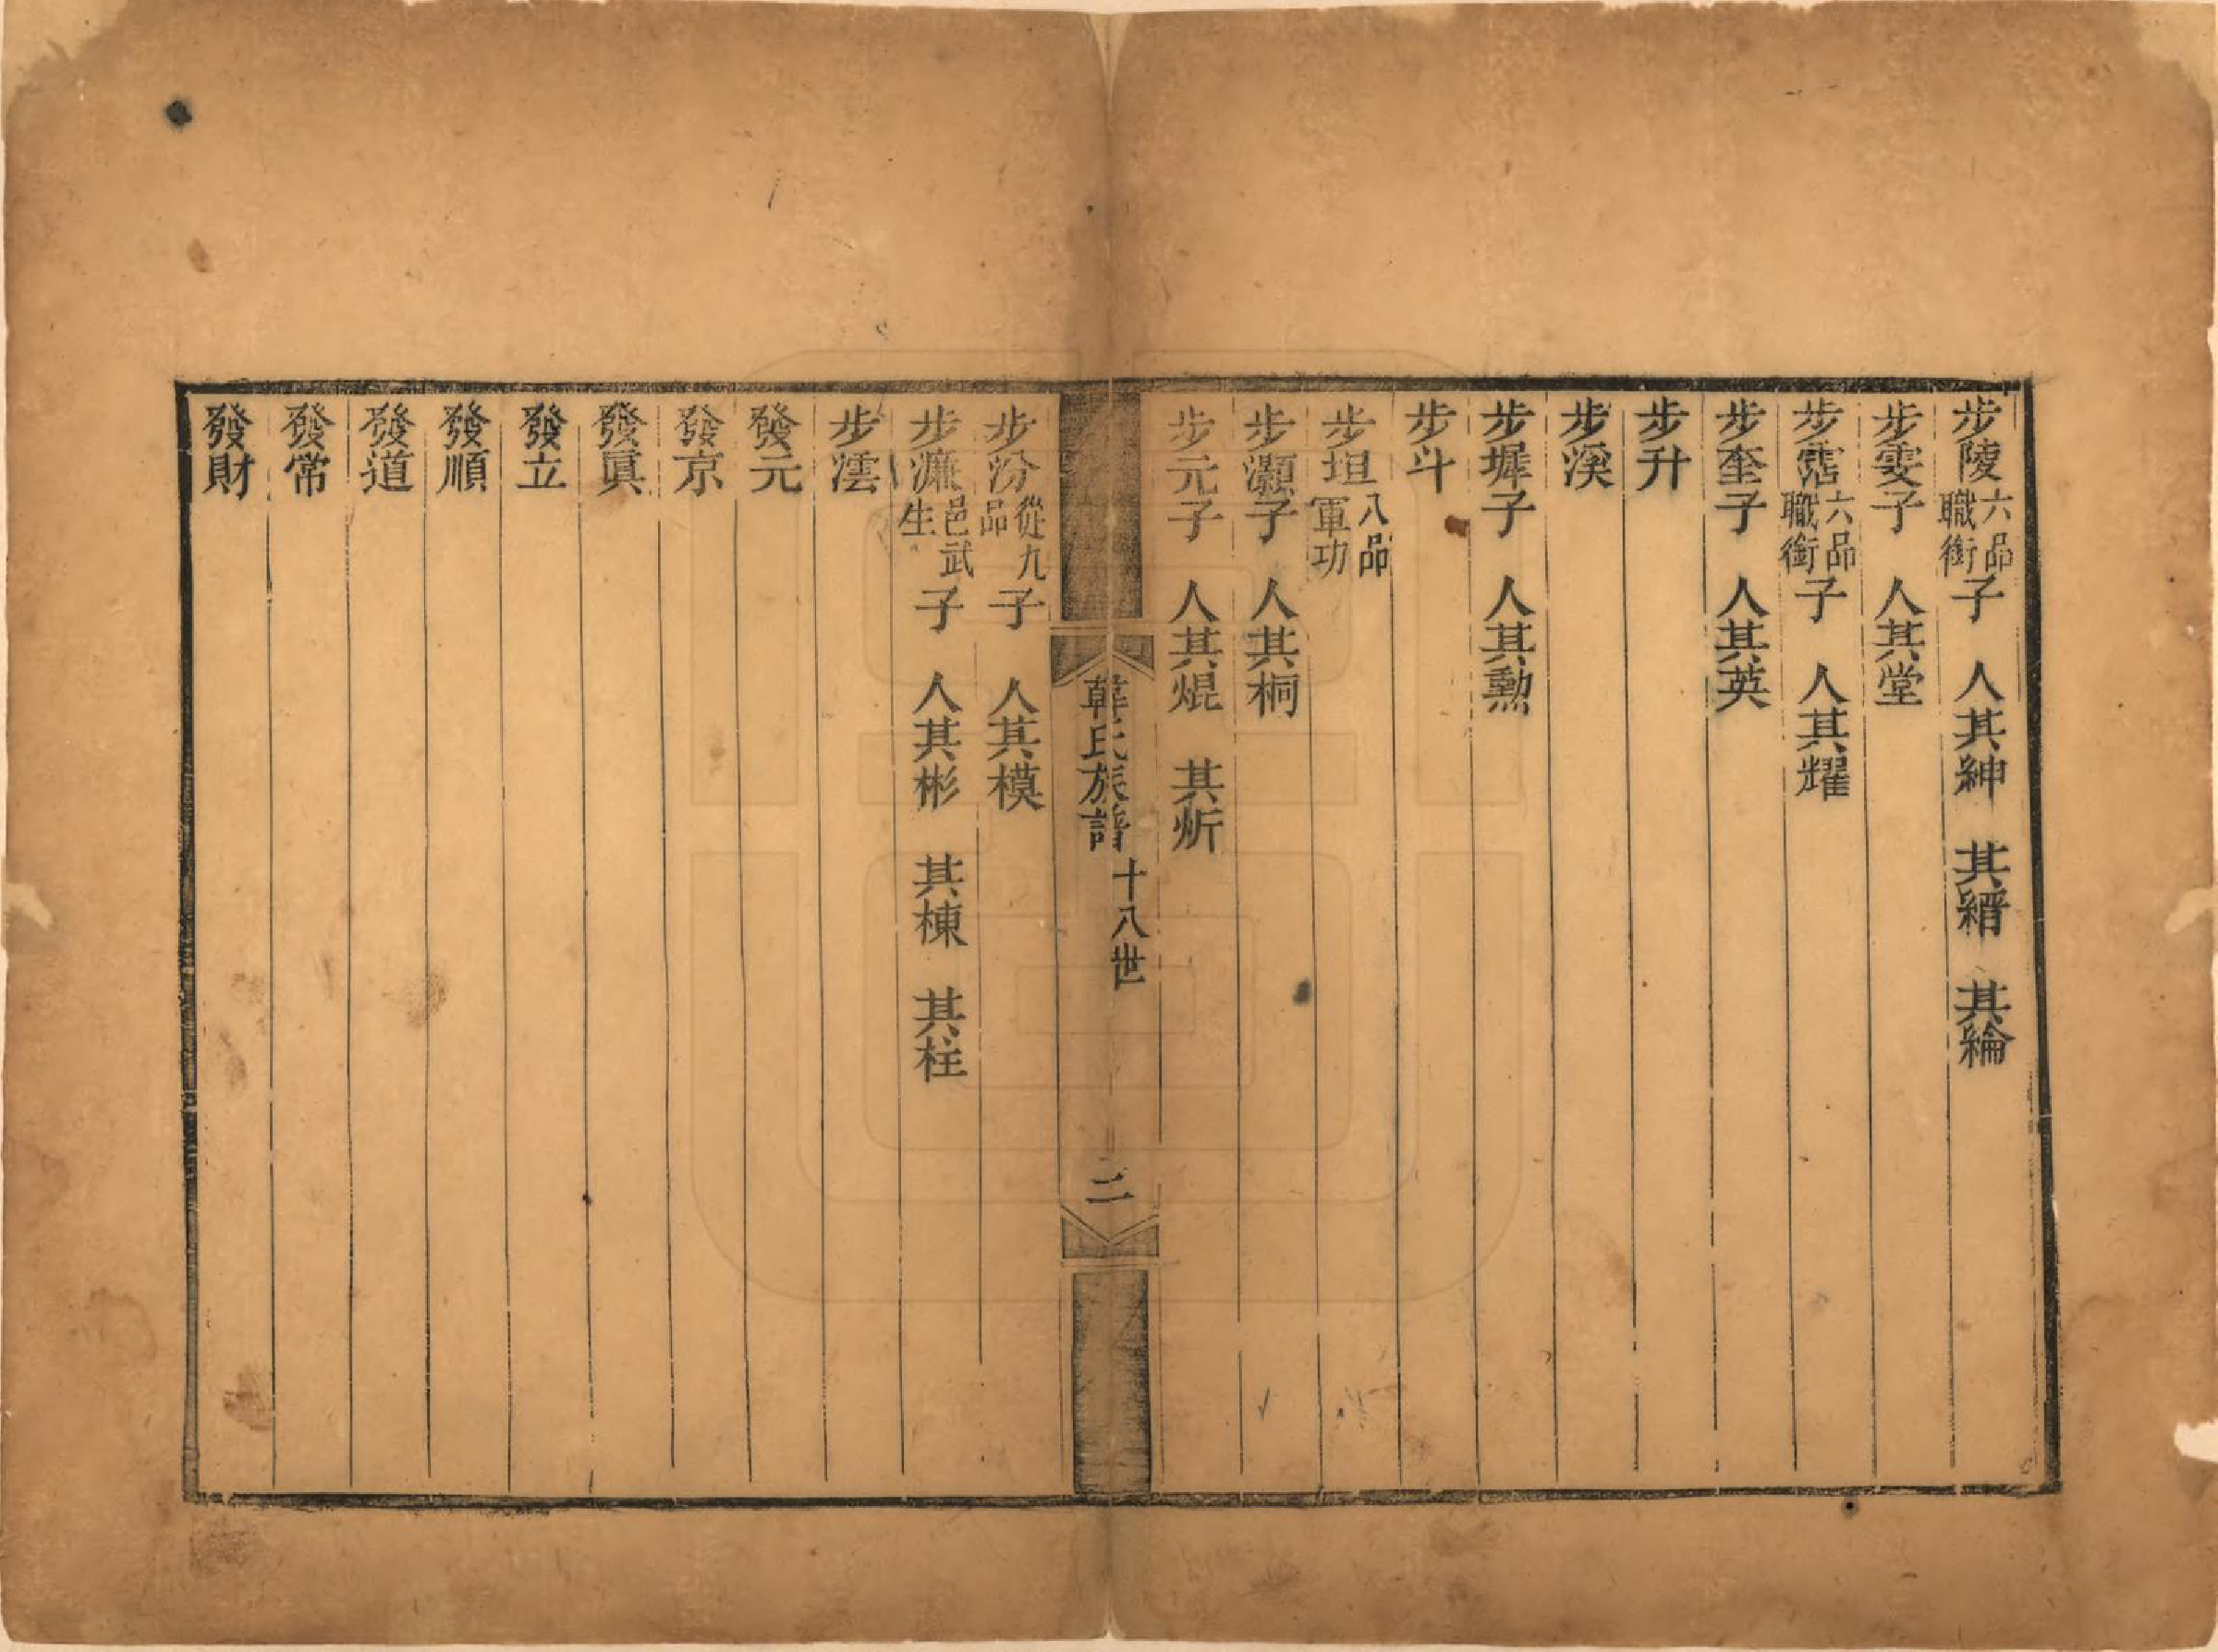 步陵六品職銜子 人其紳 其縉 其綸
步雯子 人其堂
步霑六品職銜子 人其耀
步奎子 人其英
步升
步溪
步墀子 人其勲
步斗
步坦八品軍功
步灝子 人其桐
步元子 人其焜 其炘
韓氏族譜 十八世 二
步汾從九品子 人其模
步濂邑武生子 人其彬 其棟 其柱
步澐
發元
發京
發眞
發立
發順
發道
發常
發財